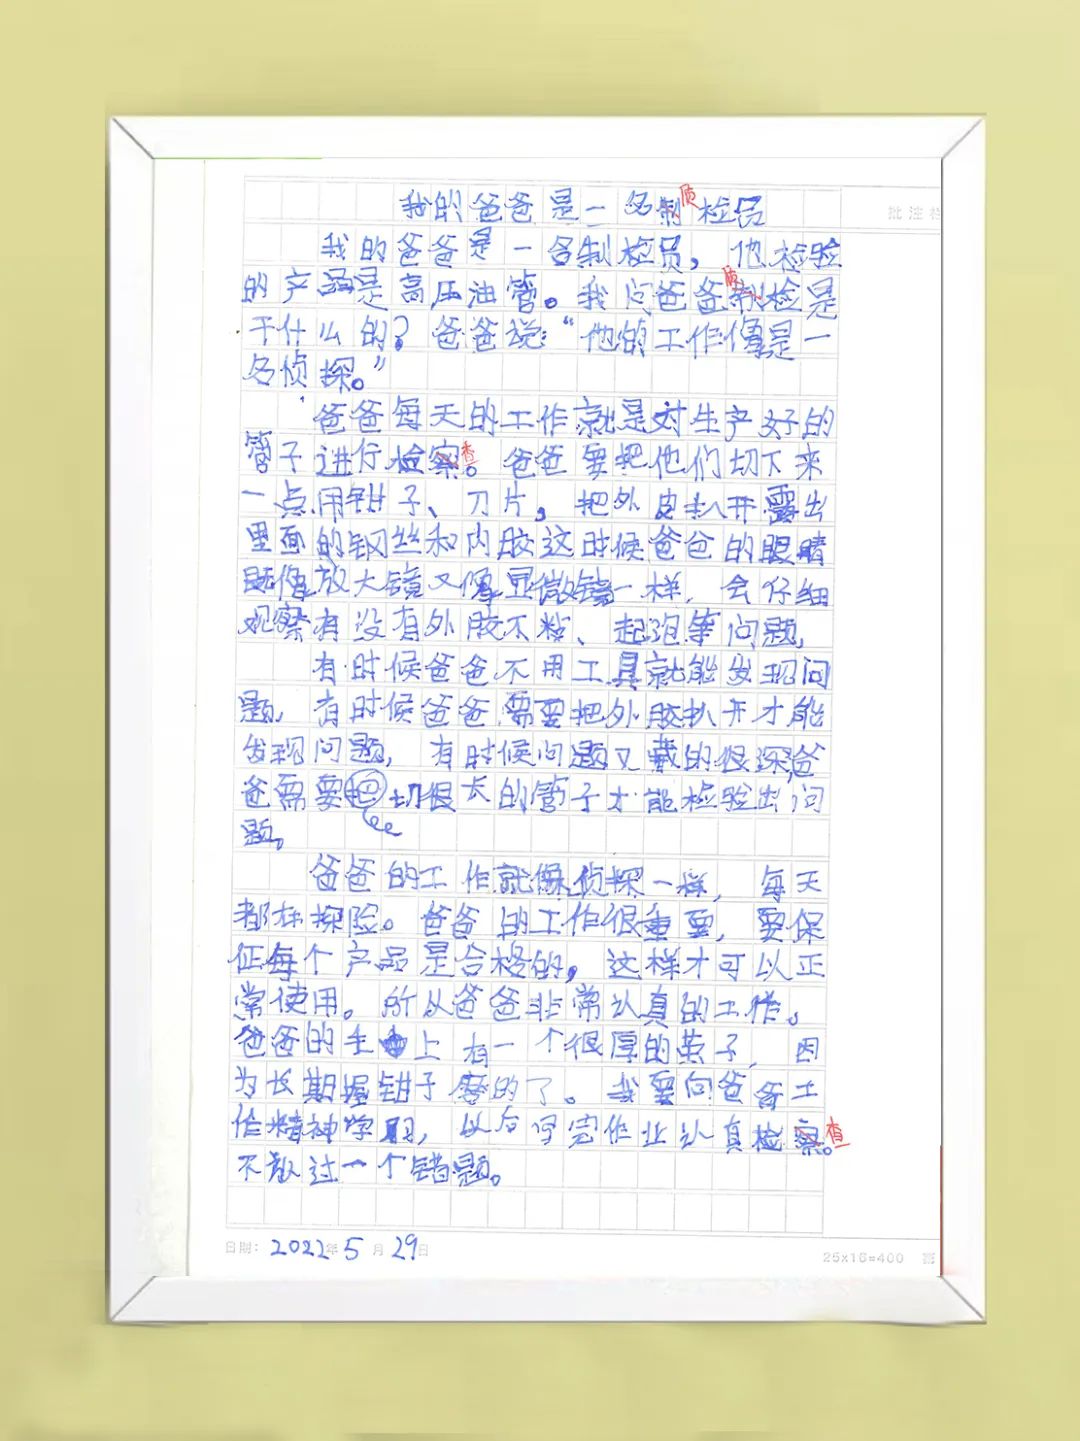 我的爸爸是一名制质检员
我的爸爸是一名制检员，他检验
的产品是高压油管。我问爸爸制质检是
干什么的？爸爸说：“他的工作像是一
名侦探。”
爸爸每天的工作就是对生产好的
管子进行检察查。爸爸要把他们切下来
一点用钳子、刀片，把外皮扒开露出
里面的钢丝和内胶这时候爸爸的眼睛
既像放大镜又像显微镜一样，会仔细
观察有没有外胶不粘、起泡等问题，
有时候爸爸不用工具就能发现问
题，有时候爸爸需要把外胶扒开才能
发现问题，有时候问题又藏的很深，爸
爸需要把切很长的管子才能检验出问
题。
爸爸的工作就像侦探一样，每天
都在探险。爸爸的工作很重要，要保
证每个产品是合格的，这样才可以正
常使用。所以爸爸非常认真的工作。
爸爸的手上有一个很厚的茧子，因
为长期握钳子磨的了。我要向爸爸工
作精神学习，以后写完作业认真检察查。
不放过一个错题。
日期：2022年5月29日
25x16=400
批注栏